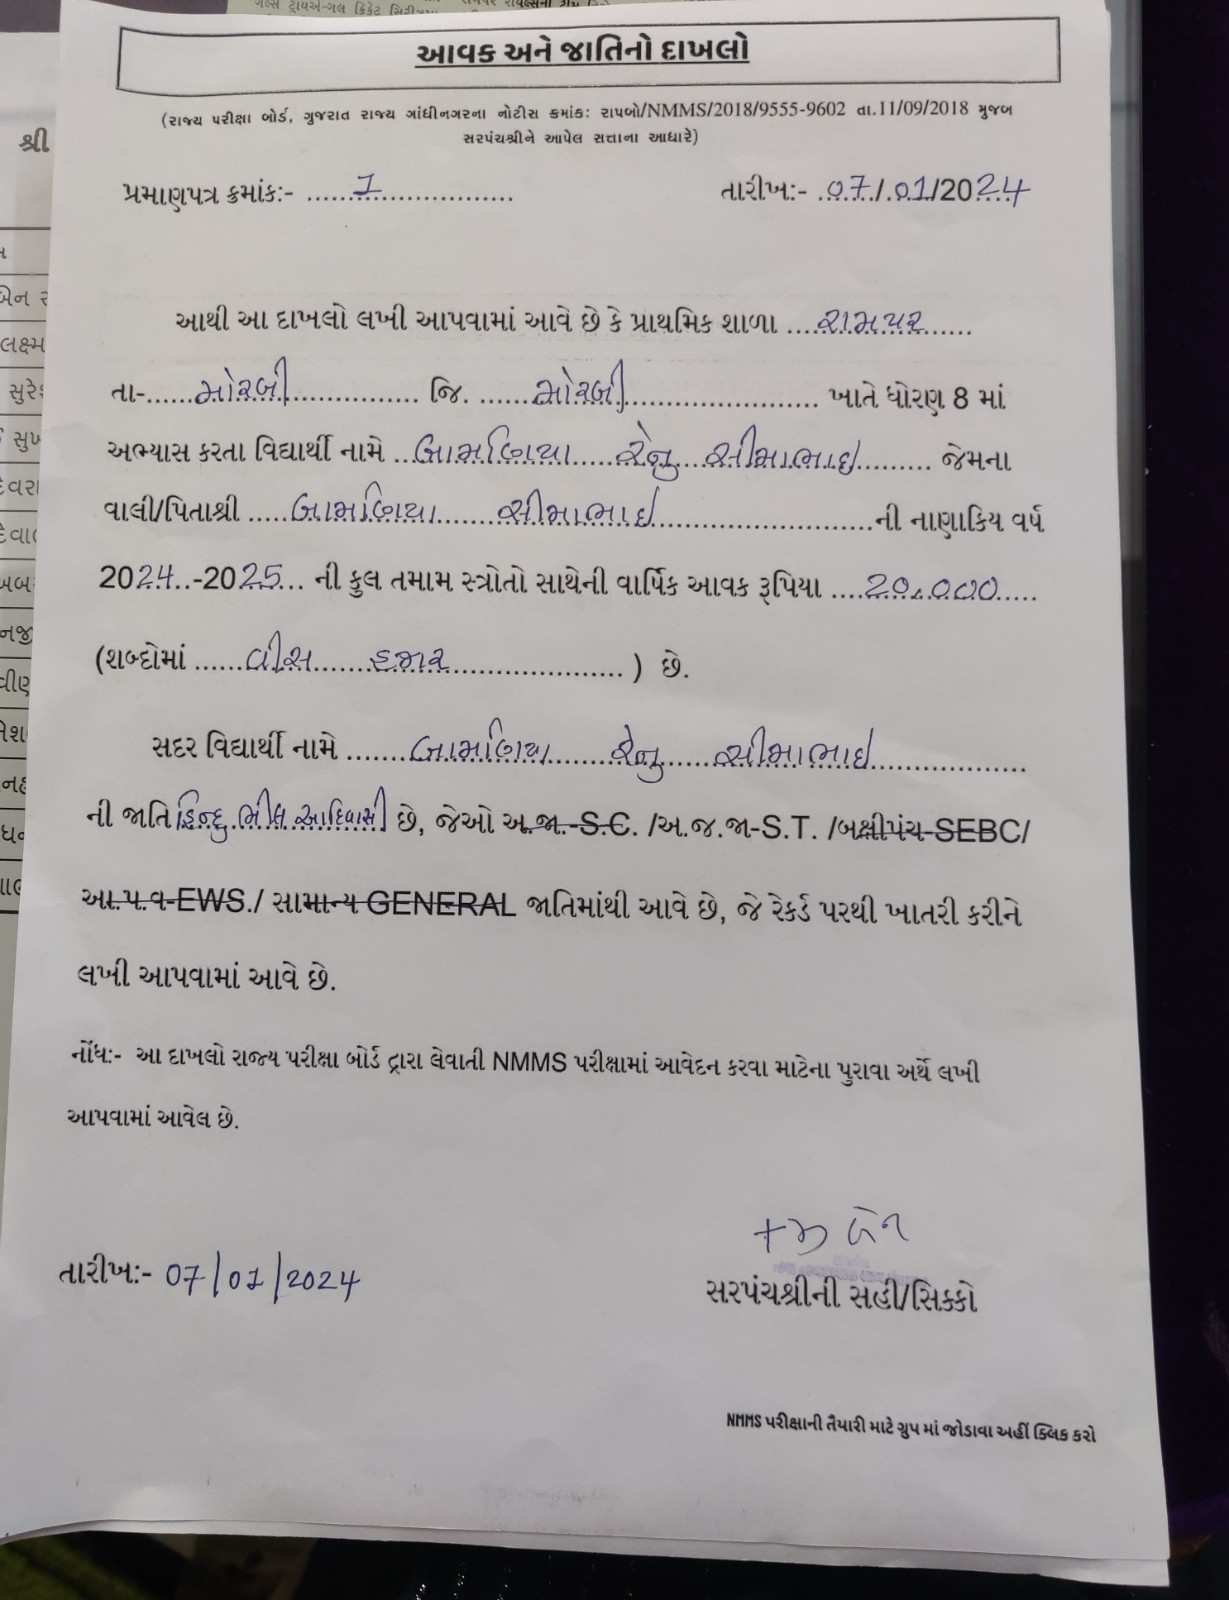 આવક અને જાતિનો દાખલો
(રાજ્ય પરીક્ષા બોર્ડ, ગુજરાત રાજ્ય ગાંધીનગરના નોટીસ ક્રમાંક: રાપબો/NMMS/2018/9555-9602 તા.11/09/2018 મુજબ
સરપંચશ્રીને આપેલ સત્તાના આધારે)
પ્રમાણપત્ર ક્રમાંક:- ......1........................ તારીખ:- .07./.01/2024
આથી આ દાખલો લખી આપવામાં આવે છે કે પ્રાથમિક શાળા ....રામપર......
તા-......મોરબી................ જિ. ......મોરબી........................ ખાતે ધોરણ 8 માં
અભ્યાસ કરતા વિદ્યાર્થી નામે ..બામણિયા.....રેનુ...સીમાભાઇ......... જેમના
વાલી/પિતાશ્રી .....બામણિયા.......સીમાભાઇ...........................ની નાણાકિય વર્ષ
2024..-2025... ની કુલ તમામ સ્ત્રોતો સાથેની વાર્ષિક આવક રૂપિયા ....20,000.....
(શબ્દોમાં ......વીસ......હજાર......................) છે.
સદર વિદ્યાર્થી નામે .......બામણિયા.......રેનુ......સીમાભાઇ..................
ની જાતિ હિન્દુ ભીલ આદિવાસી છે, જેઓ અ.જા.-S.C. /અ.જ.જા-S.T. /બક્ષીપંચ-SEBC/
આ.પ.વ-EWS./ સામાન્ય GENERAL જાતિમાંથી આવે છે, જે રેકર્ડ પરથી ખાતરી કરીને
લખી આપવામાં આવે છે.
નોંધ:- આ દાખલો રાજ્ય પરીક્ષા બોર્ડ દ્વારા લેવાતી NMMS પરીક્ષામાં આવેદન કરવા માટેના પુરાવા અર્થે લખી
આપવામાં આવેલ છે.
તારીખ:- 07/01/2024
સરપંચશ્રીની સહી/સિક્કો
NMMS પરીક્ષાની તૈયારી માટે ગ્રુપ માં જોડાવા અહીં ક્લિક કરો
શ્રી